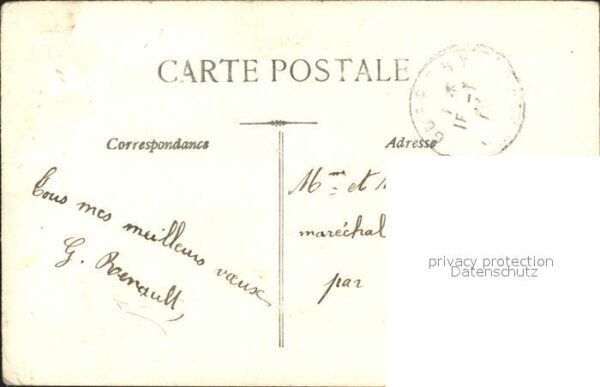 CARTE POSTALE
Correspondance
Adresse
Tous mes meilleurs vœux
G. Renault
Mme et
maréchal
par
privacy protection
Datenschutz